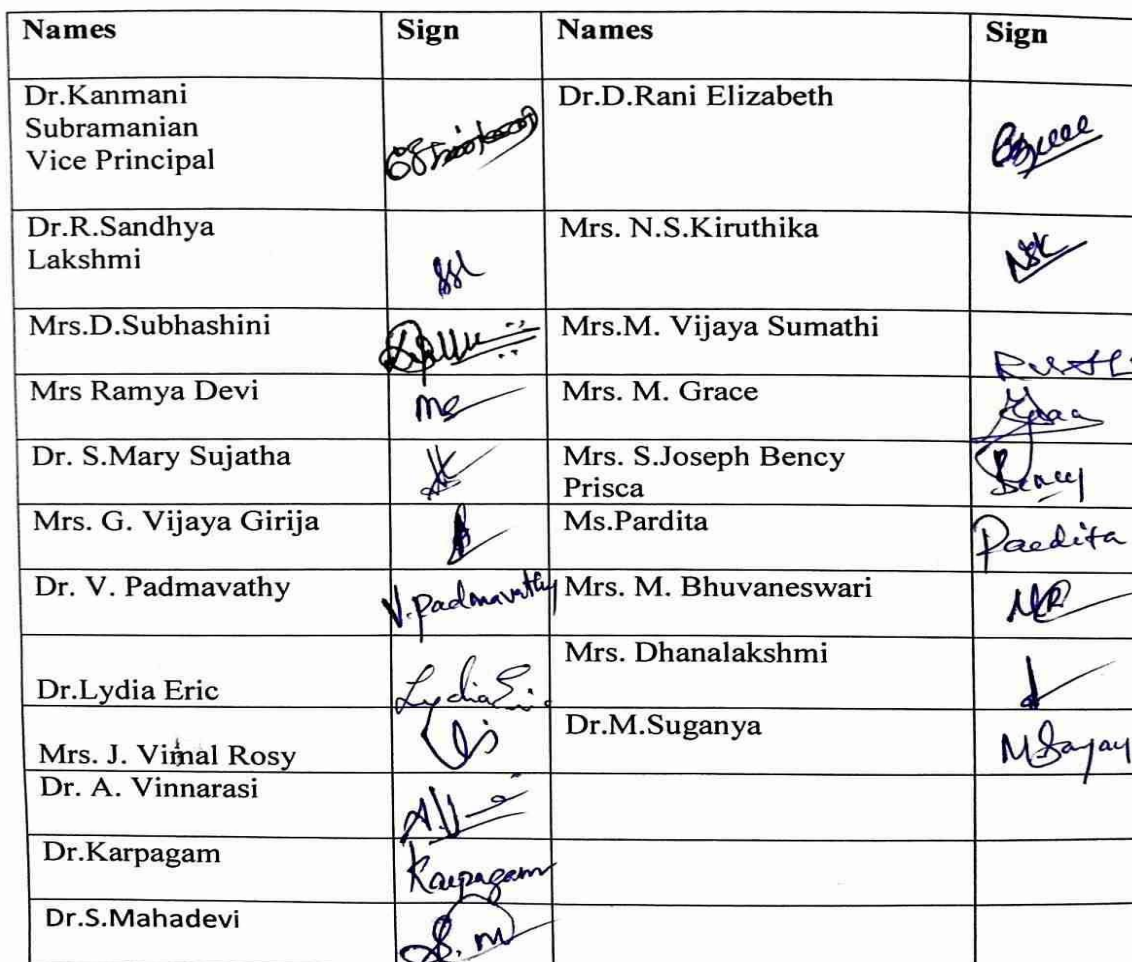 Names Sign Names Sign
Dr.Kanmani
Subramanian
Vice Principal
Dr.D.Rani Elizabeth
Dr.R.Sandhya
Lakshmi
Mrs. N.S.Kiruthika
NSK
Mrs.D.Subhashini
Mrs.M. Vijaya Sumathi
Mrs Ramya Devi
Mrs. M. Grace
Dr. S.Mary Sujatha
Mrs. S.Joseph Bency
Prisca
Bency
Mrs. G. Vijaya Girija
Ms.Pardita
Pardita
Dr. V. Padmavathy V.Padmavathy Mrs. M. Bhuvaneswari
Mrs. Dhanalakshmi
Dr.Lydia Eric
Dr.M.Suganya
Mrs. J. Vimal Rosy
Dr. A. Vinnarasi
Dr.Karpagam Karpagam
Dr.S.Mahadevi S. M